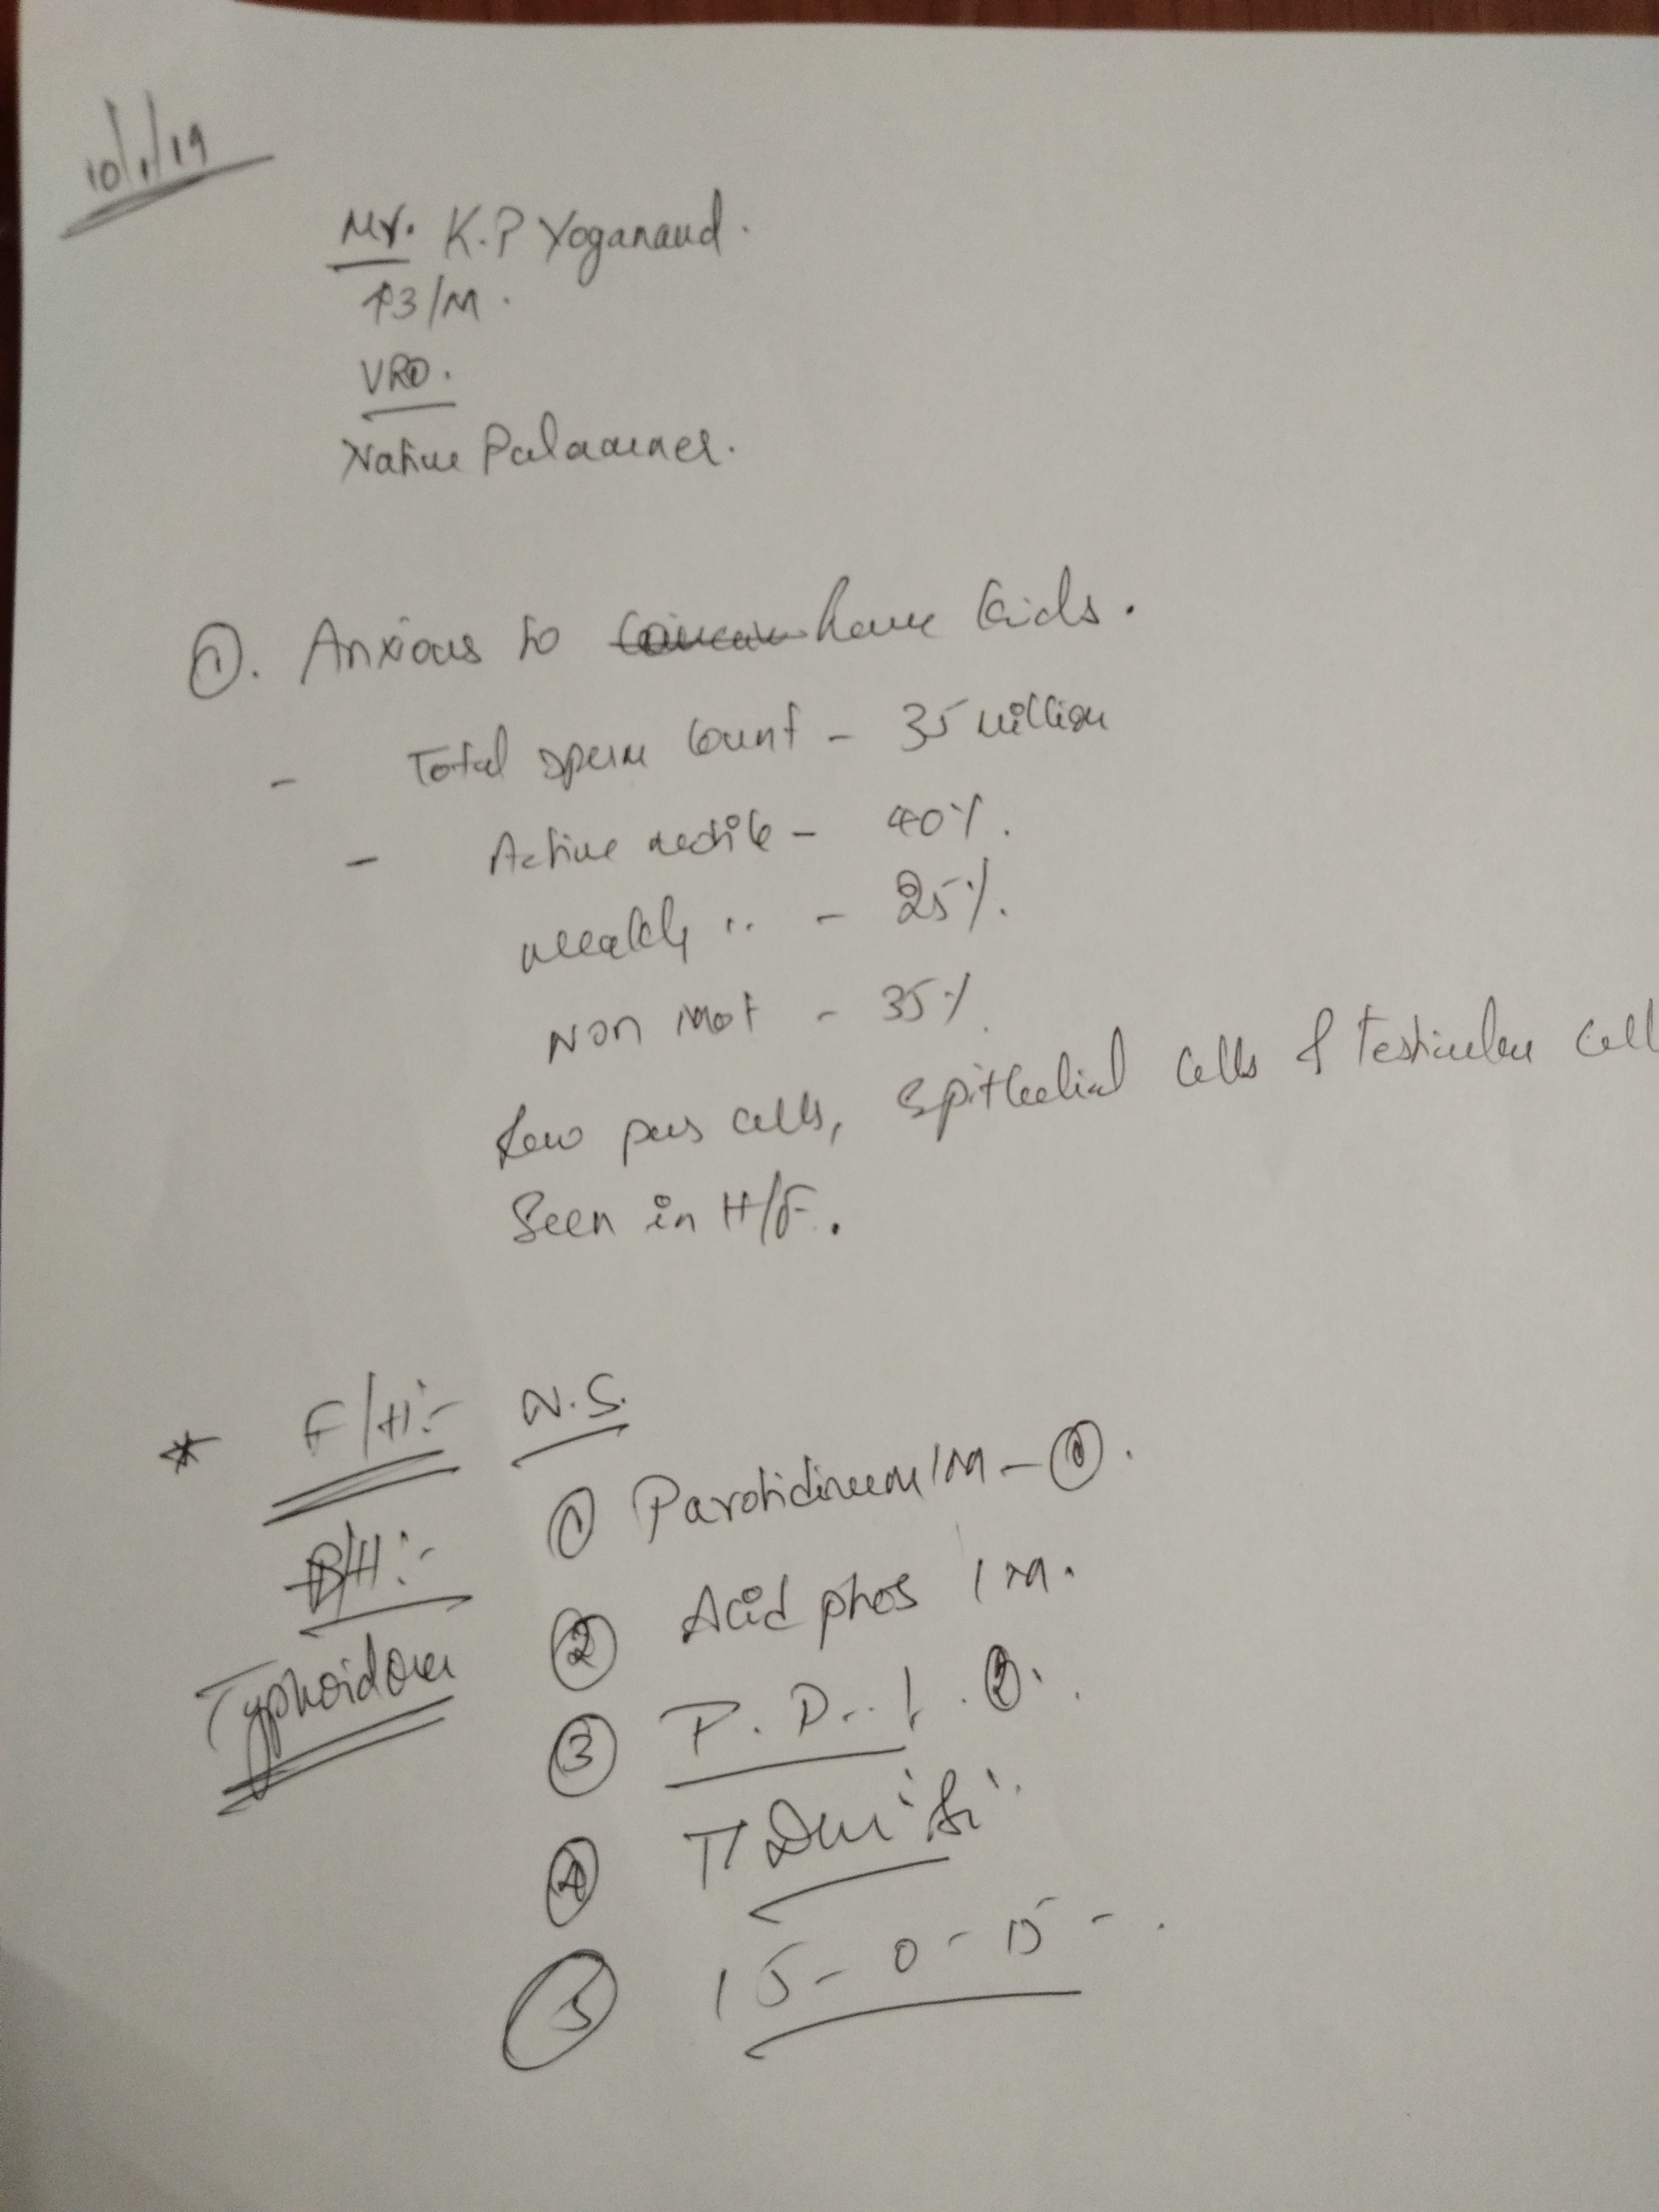 10/1/19
Mr. K.P Yoganand.
43/M.
VRO.
Native Palamaner.
①. Anxious to have kids.
- Total sperm Count - 35 million
- Active motile - 40%.
weakly ,, - 25%.
Non mot - 35%.
few pus cells, Epithelial cells & Testicular cell
Seen in H/F.
* F/H:- N.S.
① Parotidinum 1M - ①.
P/H:-
② Acid phos 1M.
Typhoid
③ P.D.. 1. ②.
④
⑤ 15 - 0 - 15 -.